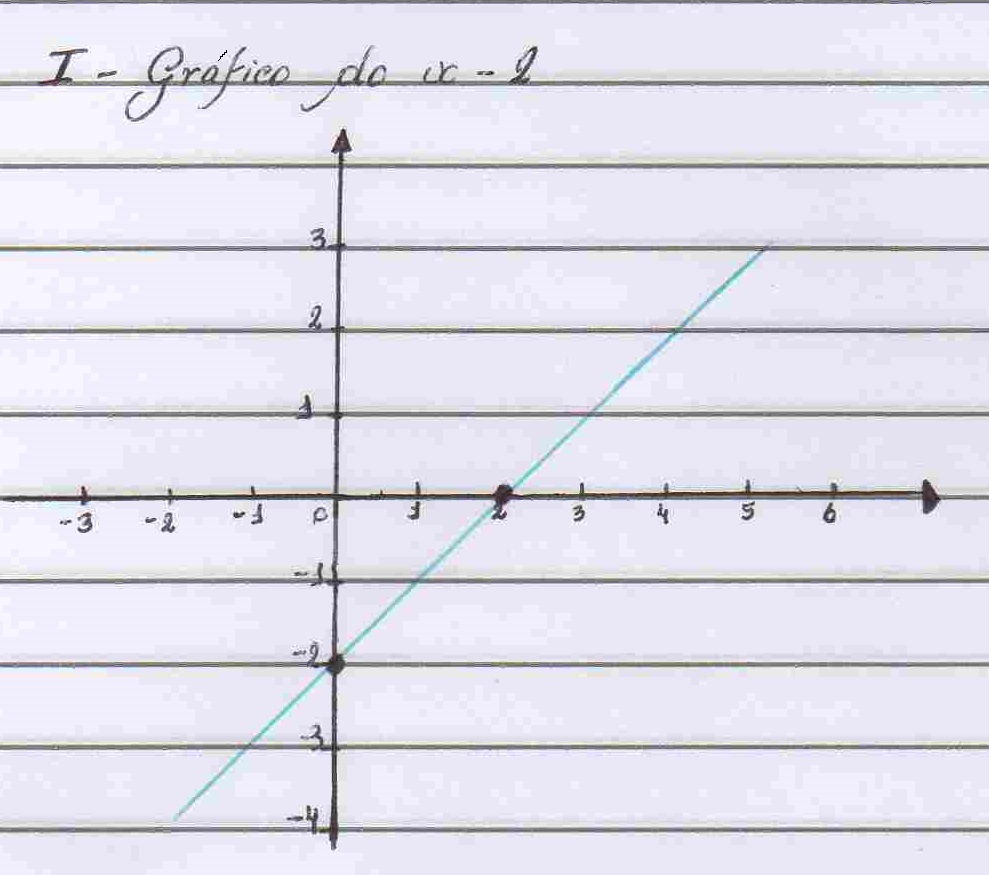 I - Gráfico do x - 2
3
2
1
-3 -2 -1 0 1 2 3 4 5 6
-1
-2
-3
-4